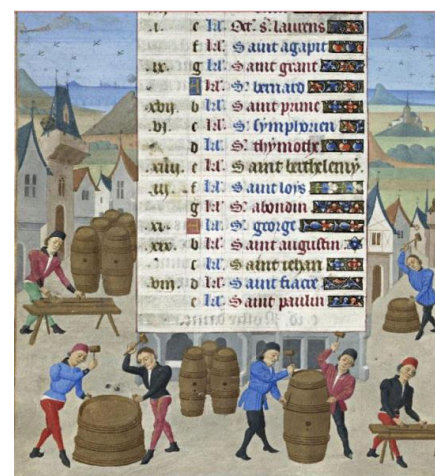 .i. c kl'. Oct. s. laurens
f kl'. Saint agapit
.ix. g kl'. Saint grant
A kl'. S. bernard
.xvij. b kl'. Saint prime
.vi. c kl'. S. symphorien
d kl'. S. thymothe
.xiiij. e kl'. Saint berthelemy.
.iij. f kl'. Saint loys
g kl'. S. abondin
.xi. kl'. S. george
.xix. b kl'. Saint augustin
c kl'. Saint iehan
.viij. d kl'. Saint fiacre
e kl'. Saint paulin